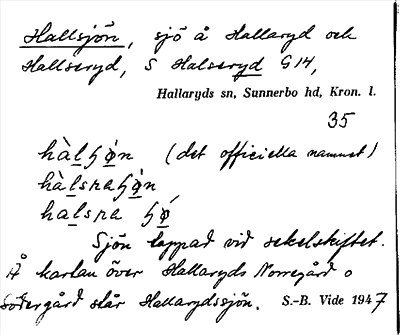 Hallsjön, sjö å Hallaryd och
Hallseryd, S Halseryd G14,
Hallaryds sn, Sunnerbo hd, Kron. l.
35
hàlɧø̀n (det officiella namnet)
hàlsnaɧø̀n
halsna ɧǿ
Sjön tappad vid sekelskiftet.
Å kartan över Hallaryds Norregård o
Södergård står Hallarydssjön. S.-B. Vide 1947